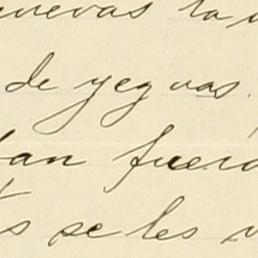 nuevas la
de yeguas.
tan fuera
s se les v